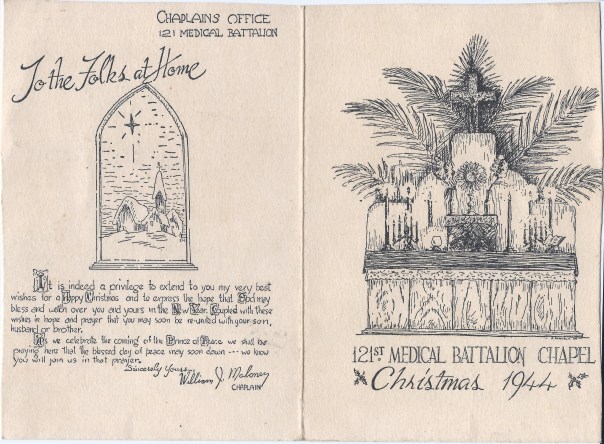 CHAPLAINS OFFICE
121 MEDICAL BATTALION
To the Folks at Home
It is indeed a privilege to extend to you my very best
wishes for a Happy Christmas and to express the hope that God may
bless and watch over you and yours in the New Year. Coupled with these
wishes is hope and prayer that you may soon be re-united with your son,
husband or brother.
As we celebrate the coming of the Prince of Peace we shall be
praying here that the blessed day of peace may soon dawn --- we know
you will join us in that prayer.
Sincerely Yours,
William J. Maloney
CHAPLAIN
121ST MEDICAL BATTALION CHAPEL
Christmas 1944